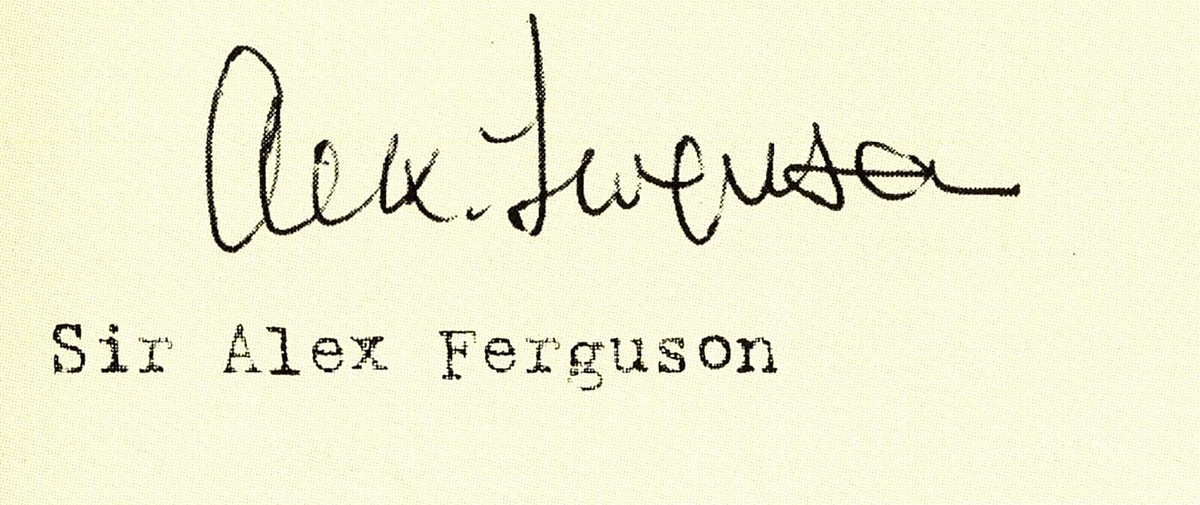 Alex. Ferguson
Sir Alex Ferguson